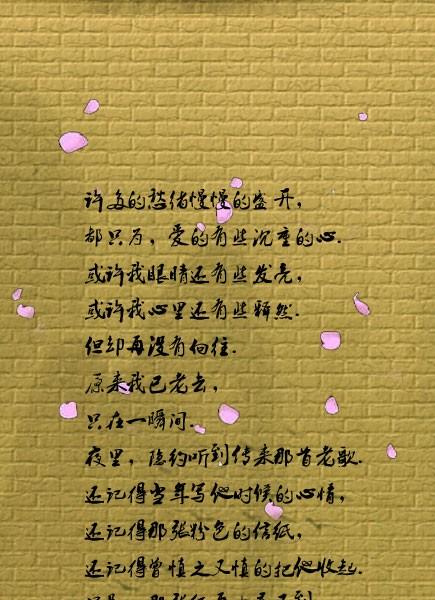 许多的愁绪慢慢的盛开，
都只为，爱的有些沉重的心.
或许我眼睛还有些发亮，
或许我心里还有些释然.
但却再没有向往.
原来我已老去，
只在一瞬间.
夜里，隐约听到传来那首老歌.
还记得当年写他时候的心情，
还记得那张粉色的信纸，
还记得曾慎之又慎的把他收起.